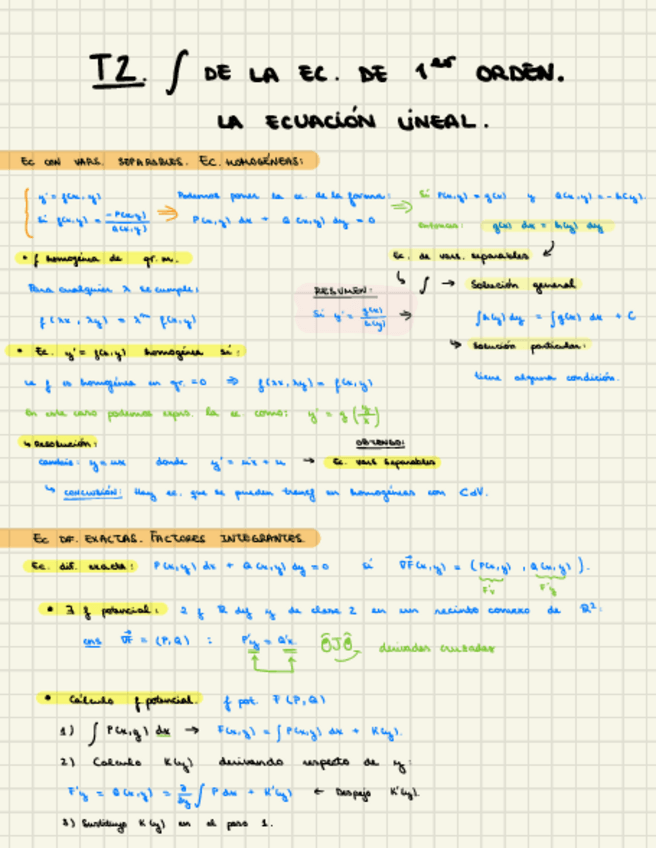 T2. ∫ DE LA EC. DE 1er ORDEN.
LA ECUACIÓN LINEAL.
EC CON VARS. SEPARABLES. EC. HOMOGÉNEAS:
y' = f(x,y)
Si f(x,y) = -P(x,y)/Q(x,y)
⇒ Podemos poner la ec. de la forma:
P(x,y) dx + Q(x,y) dy = 0
⇒ Si P(x,y) = g(x) y Q(x,y) = -h(y).
entonces: g(x) dx = h(y) dy
Ec. de vars. separables
• f homogénea de gr. m.
Para cualquier λ se cumple:
f(λx, λy) = λ^m f(x,y)
RESUMEN:
Si y' = g(x)/h(y) ⇒
↳ ∫ → Solución general
∫h(y) dy = ∫g(x) dx + C
↳ Solución particular:
tiene alguna condición.
• Ec. y' = f(x,y) homogénea si:
f es homogénea en gr. = 0 ⇒ f(λx, λy) = f(x,y)
En este caso podemos expr. la ec como: y' = g(y/x)
↳ Resolución:
cambio: y = ux donde y' = u'x + u →
OBTENGO:
Ec. vars separables
↳ CONCLUSIÓN: Hay ec. que se pueden transf en homogéneas con CdV.
EC DF. EXACTAS. FACTORES INTEGRANTES.
Ec. dif. exacta: P(x,y) dx + Q(x,y) dy = 0 si ∇F(x,y) = (P(x,y), Q(x,y)).
F'x F'y
• ∃ f potencial: 2 f R de clase 2 en un recinto convexo de R²:
∇F = (P, Q) : P'y = Q'x OJO derivadas cruzadas
• Cálculo f potencial. f pot. F (P, Q)
1) ∫ P(x,y) dx → F(x,y) = ∫ P(x,y) dx + K(y).
2) Calculo K(y) derivando respecto de y:
F'y = Q(x,y) = ∂/∂y ∫ P dx + K'(y) ← Despejo K'(y).
3) Sustituyo K(y) en el paso 1.